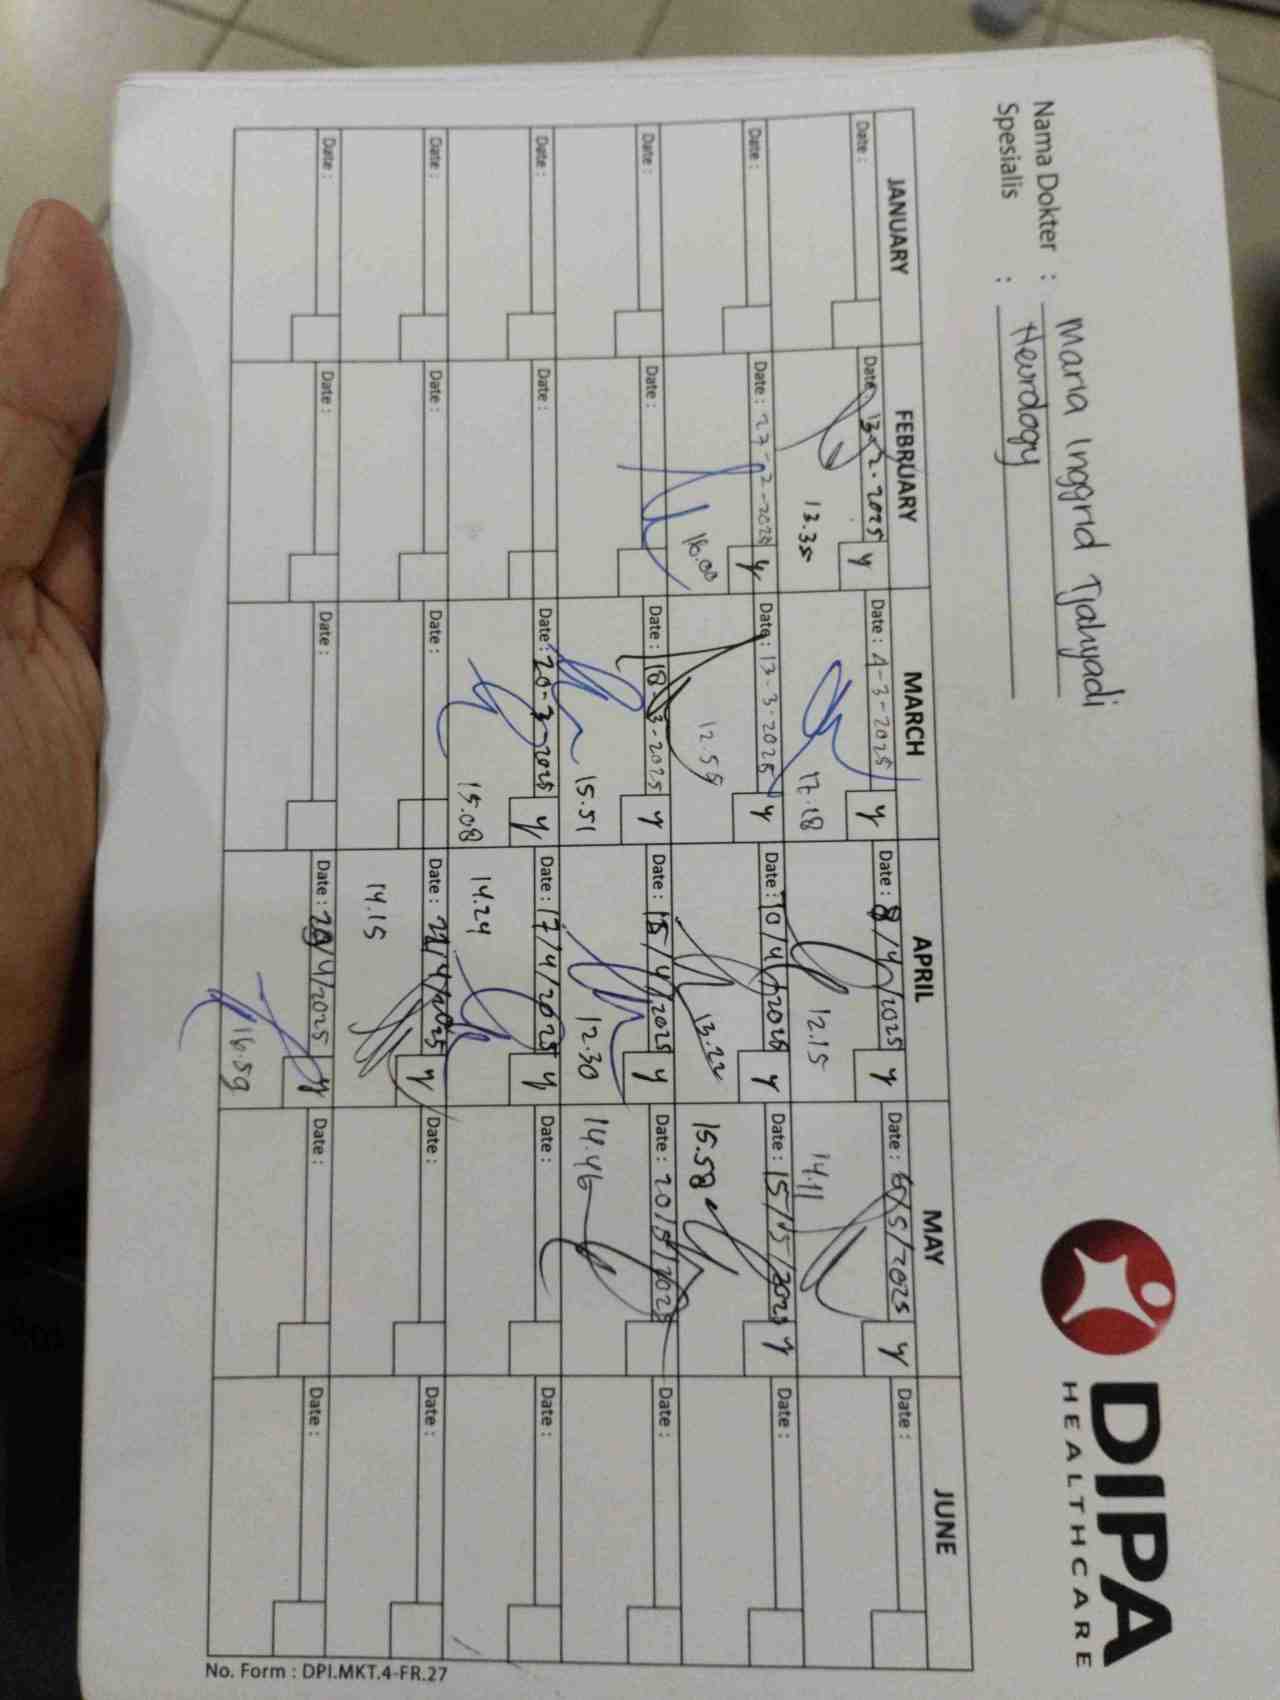 Nama Dokter : Maria Inggrid Tjahyadi
Spesialis : Neurology
DIPA
HEALTHCARE
JANUARY FEBRUARY MARCH APRIL MAY JUNE
Date : Date : 13-2-2025 y Date : 4-3-2025 y Date : 8/4/2025 y Date : 6/5/2025 y Date :
13.35 17.18 12.15 14.11
Date : Date : 27-2-2025 y Date : 13-3-2025 y Date : 10/4/2025 y Date : 15/5/2025 y Date :
16.00 12.55 13.22 15.58
Date : Date : Date : 18-3-2025 y Date : 15/4/2025 y Date : 20/5/2025 Date :
15.51 12.30 14.46
Date : Date : Date : 20-3-2025 y Date : 17/4/2025 y Date : Date :
15.08 14.24
Date : Date : Date : Date : /4/2025 y Date : Date :
14.15
Date : Date : Date : Date : /4/2025 y Date : Date :
16.59
No. Form : DPI.MKT.4-FR.27